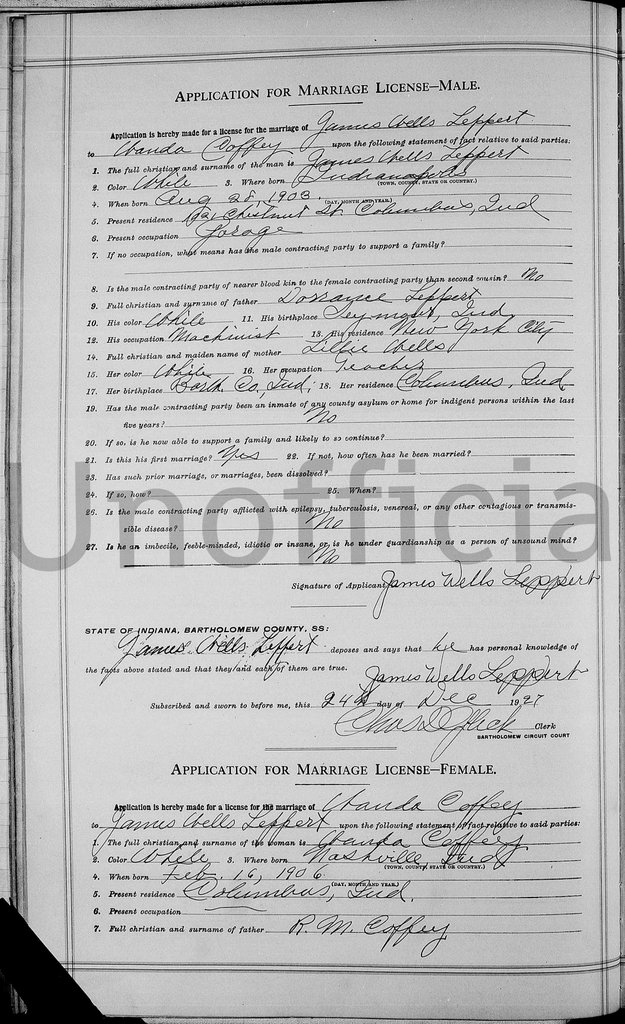 APPLICATION FOR MARRIAGE LICENSE—MALE.
Application is hereby made for a license for the marriage of James Wells Leppert
to Wanda Coffey upon the following statement of fact relative to said parties:
1. The full christian and surname of the man is James Wells Leppert
2. Color White 3. Where born Indianapolis
(TOWN, COUNTY, STATE OR COUNTRY.)
4. When born Aug 28, 1903
(DAY, MONTH AND YEAR.)
5. Present residence Chestnut St Columbus, Ind
6. Present occupation Garage
7. If no occupation, what means has the male contracting party to support a family?
8. Is the male contracting party of nearer blood kin to the female contracting party than second cousin? No
9. Full christian and surname of father Dorrance Leppert
10. His color White 11. His birthplace Seymour, Ind
12. His occupation Machinist 13. His residence New York City
14. Full christian and maiden name of mother Lillie Wells
15. Her color White 16. Her occupation Teacher
17. Her birthplace Barth Co, Ind; 18. Her residence Columbus, Ind
19. Has the male contracting party been an inmate of any county asylum or home for indigent persons within the last
five years? No
20. If so, is he now able to support a family and likely to so continue?
21. Is this his first marriage? Yes 22. If not, how often has he been married?
23. Has such prior marriage, or marriages, been dissolved?
24. If so, how? 25. When?
26. Is the male contracting party afflicted with epilepsy, tuberculosis, venereal, or any other contagious or transmis-
sible disease? No
27. Is he an imbecile, feeble-minded, idiotic or insane, or is he under guardianship as a person of unsound mind?
No
Unofficia
Signature of Applicant James Wells Leppert
STATE OF INDIANA, BARTHOLOMEW COUNTY, SS:
James Wells Leppert deposes and says that he has personal knowledge of
the facts above stated and that they and each of them are true.
James Wells Leppert
Subscribed and sworn to before me, this 24th day of Dec 1927
Chas D Flick Clerk
BARTHOLOMEW CIRCUIT COURT
APPLICATION FOR MARRIAGE LICENSE—FEMALE.
Application is hereby made for a license for the marriage of Wanda Coffey
to James Wells Leppert upon the following statement of fact relative to said parties:
1. The full christian and surname of the woman is Wanda Coffey
2. Color White 3. Where born Nashville Ind
(TOWN, COUNTY, STATE OR COUNTRY.)
4. When born Feb. 16, 1906
(DAY, MONTH AND YEAR.)
5. Present residence Columbus, Ind.
6. Present occupation
7. Full christian and surname of father R. M. Coffey